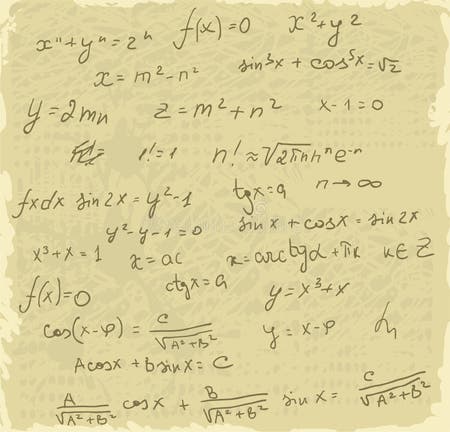 xⁿ+yⁿ=zⁿ f(x)=0 x²+y²
x=m²-n² sin³x + cos⁵x=√2
y=2mn z=m²+n² x-1=0
1!=1 n!≈√2πn nⁿe⁻ⁿ
tgx=a n→∞
fxdx sin2x=y²-1
y²-y-1=0 sinx+cosx=sin2x
x³+x=1 x=ac x=arctgα+πk k∈Z
f(x)=0 ctgx=a y=x³+x
cos(x-φ)=C/√A²+B² y=x-φ
Acosx+Bsinx=C
A/√A²+B² cosx + B/√A²+B² sinx=C/√A²+B²